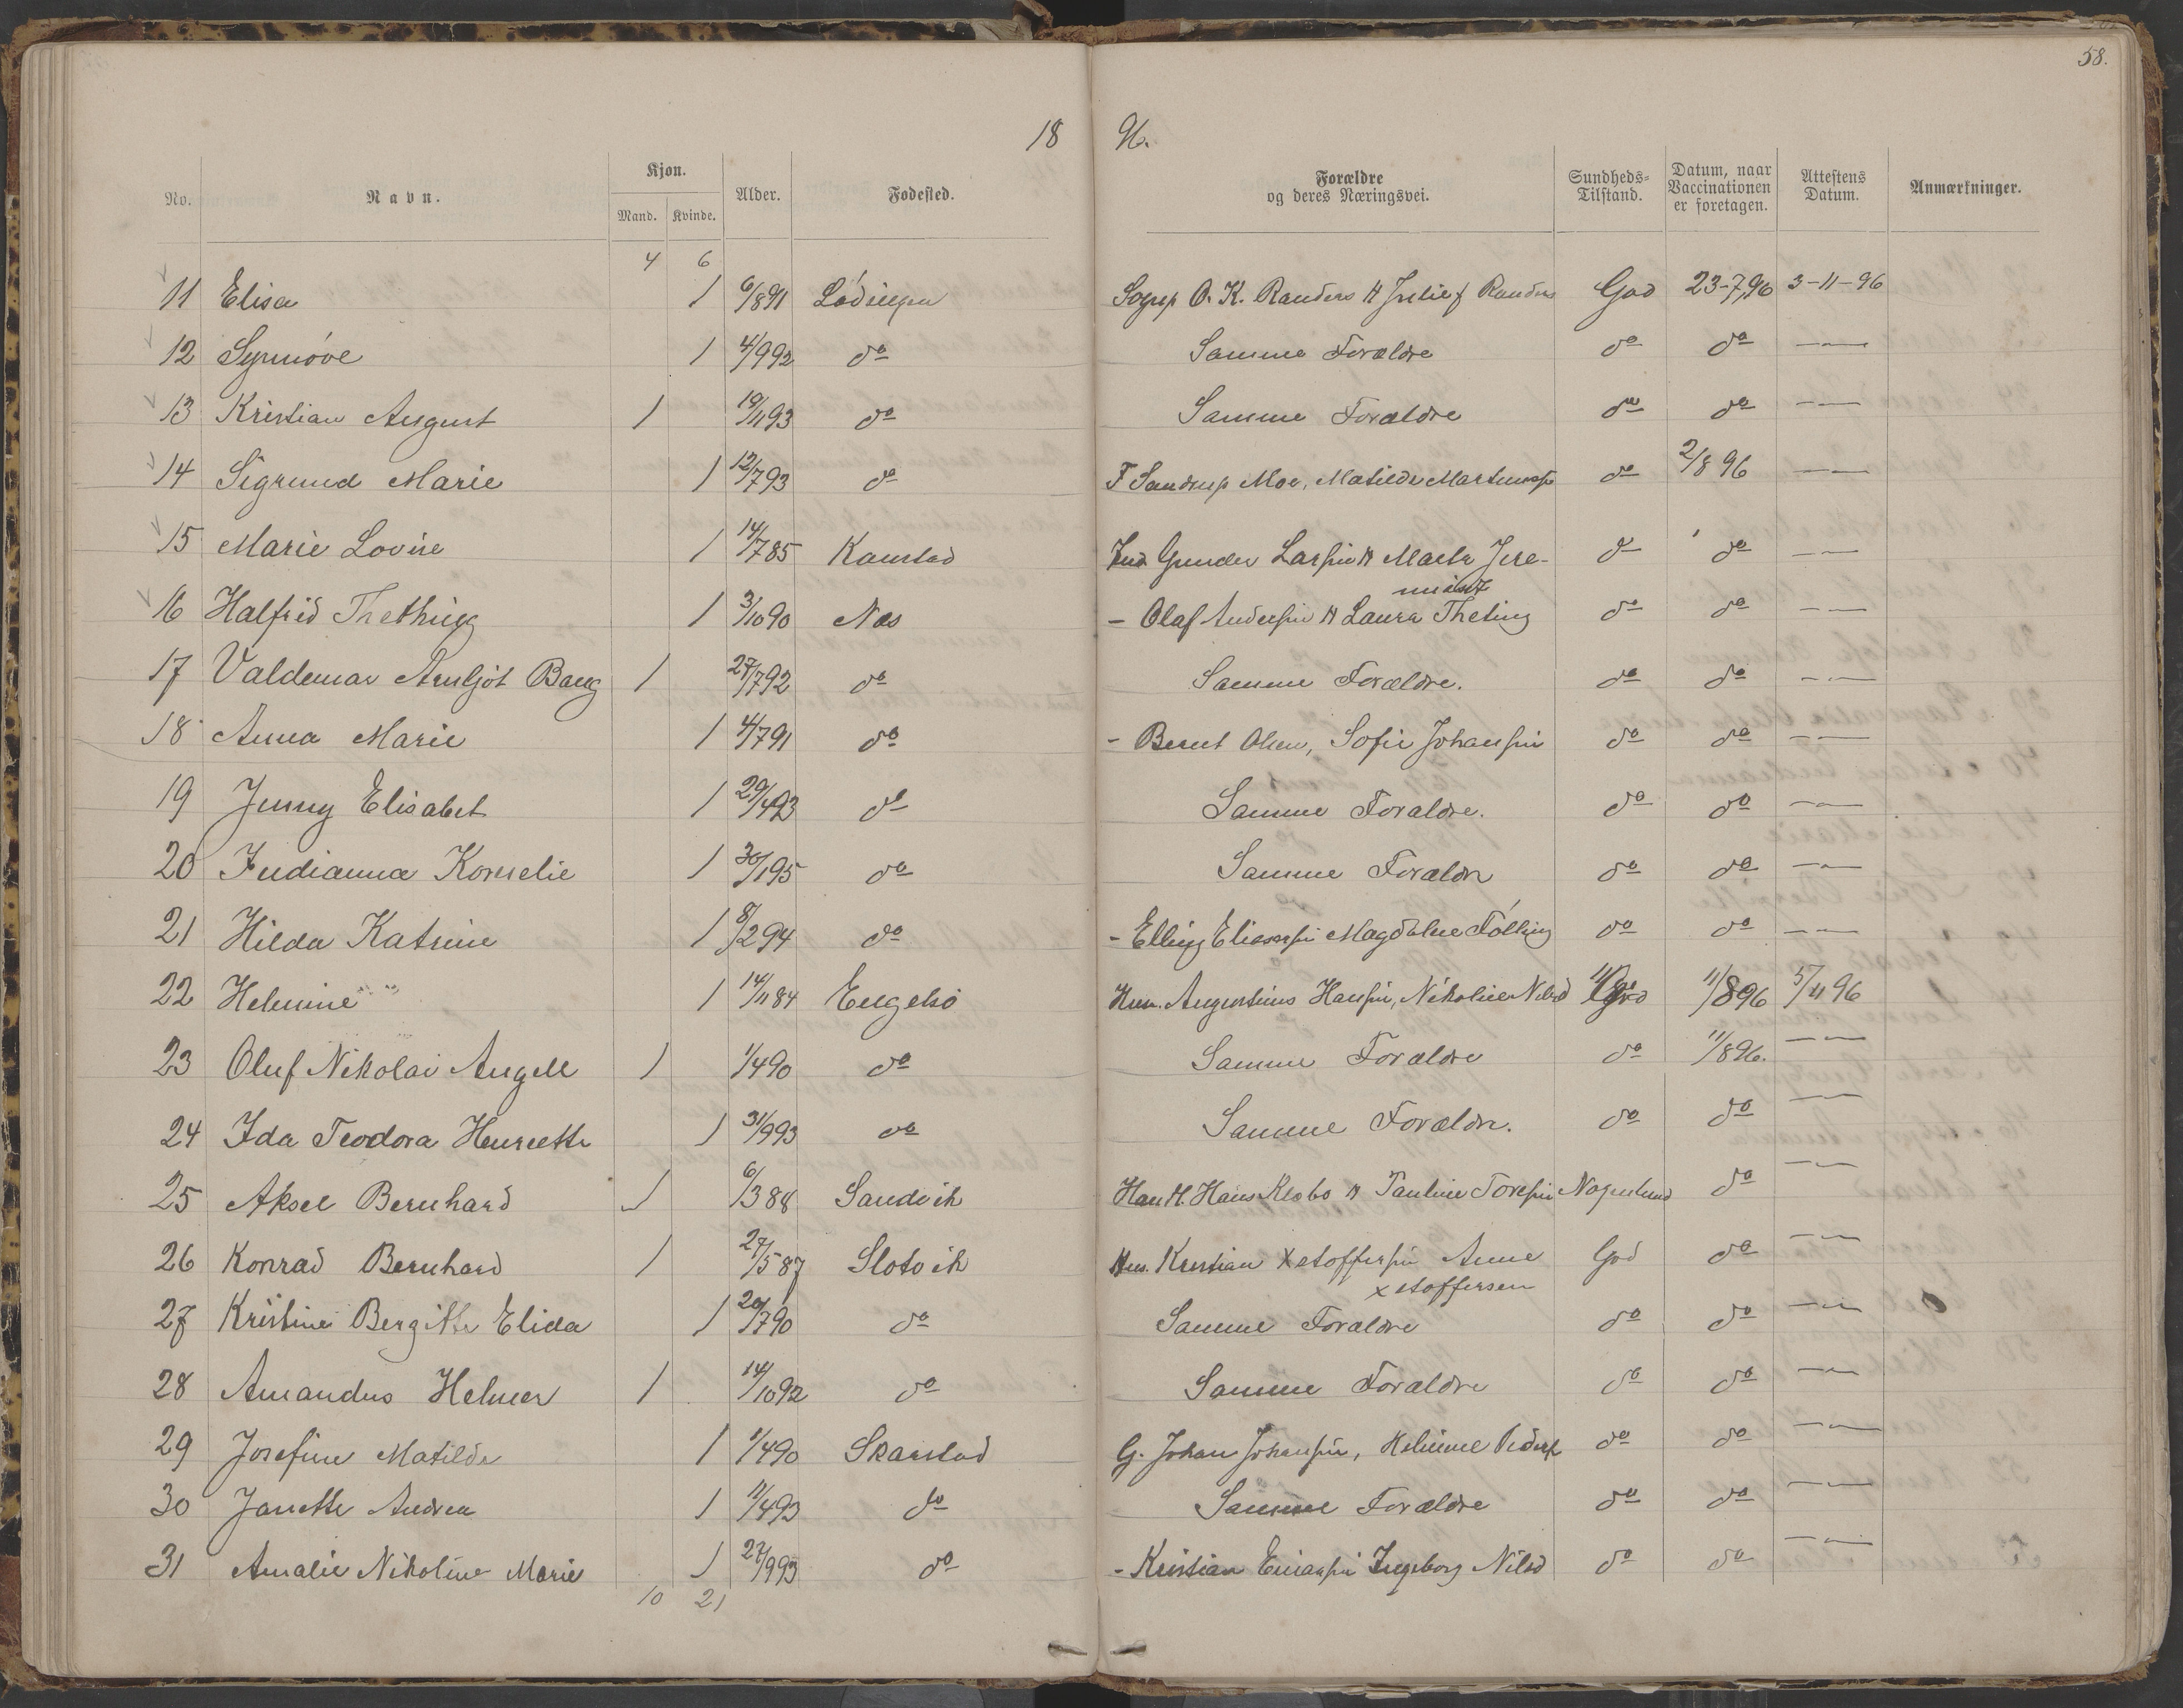 58.
18 96.
No. Navn. Kjøn. Mand. Kvinde. Alder. Fødested. Forældre og deres Næringsvei. Sundheds-Tilstand. Datum, naar Vaccinationen er foretagen. Attestens Datum. Anmærkninger.
4 6
11 Elisa 1 6/8 91 Lødingen Sogep O. K. Randers & Julie f Randers God 23-7,96 3-11-96
12 Synnøve 1 4/9 92 do Samme Forældre do do —"—
13 Kristian August 1 19/11 93 do Samme Forældre do do —"—
14 Sigrund Marie 1 12/7 93 do F Sandrup Moe, Matilde do 2/8 96 —"—
15 Marie Lovise 1 14/7 85 Kanstad Ind Gunder Larsen & Marta Jere-
miasd do do —"—
16 Halfrid Thething 1 3/10 90 Næs - Olaf Andersen & Laura Theting do do —"—
17 Valdemar Arnljot Bang 1 27/7 92 do Samme Forældre. do do —"—
18 Anna Marie 1 4/7 91 do - Bernt Olsen, Sofie Johansen do do —"—
19 Jenny Elisabet 1 29/4 93 do Samme Forældre. do do —"—
20 Indianna Kornelie 1 30/1 95 do Samme Forældre do do —"—
21 Hilda Katrine 1 8/2 94 do - Elling Eliassen Magdalene Følling do do —"—
22 Helmine 1 14/11 84 Engelsø Hus. Augustinus Hansen, Nikoline Nilsd God 11/8 96 5/11 96
23 Oluf Nikolai Angell 1 1/4 90 do Samme Forældre do 11/8 96. —"—
24 Ida Teodora Henriette 1 31/9 93 do Samme Forældre. do do —"—
25 Aksel Bernhard 1 6/3 84 Sandvik Handl. Hans Klobo & Pauline Toresen do —"—
26 Konrad Bernhard 1 27/5 87 Slotvik Hus. Kristian Xstoffersen Anne
xstoffersen God do —"—
27 Kristine Bergitte Elida 1 20/7 90 do Samme Forældre do do —"—
28 Amandus Helmer 1 14/10 92 do Samme Forældre do do —"—
29 Josefine Matilde 1 1/4 90 Skarstad G. Johan Johansen, Helmine Peders do do —"—
30 Janette Andrea 1 11/4 93 do Samme Forældre do do —"—
31 Amalie Nikoline Marie 1 27/9 93 do - Kristian Ingeborg Nilsd do do —"—
10 21